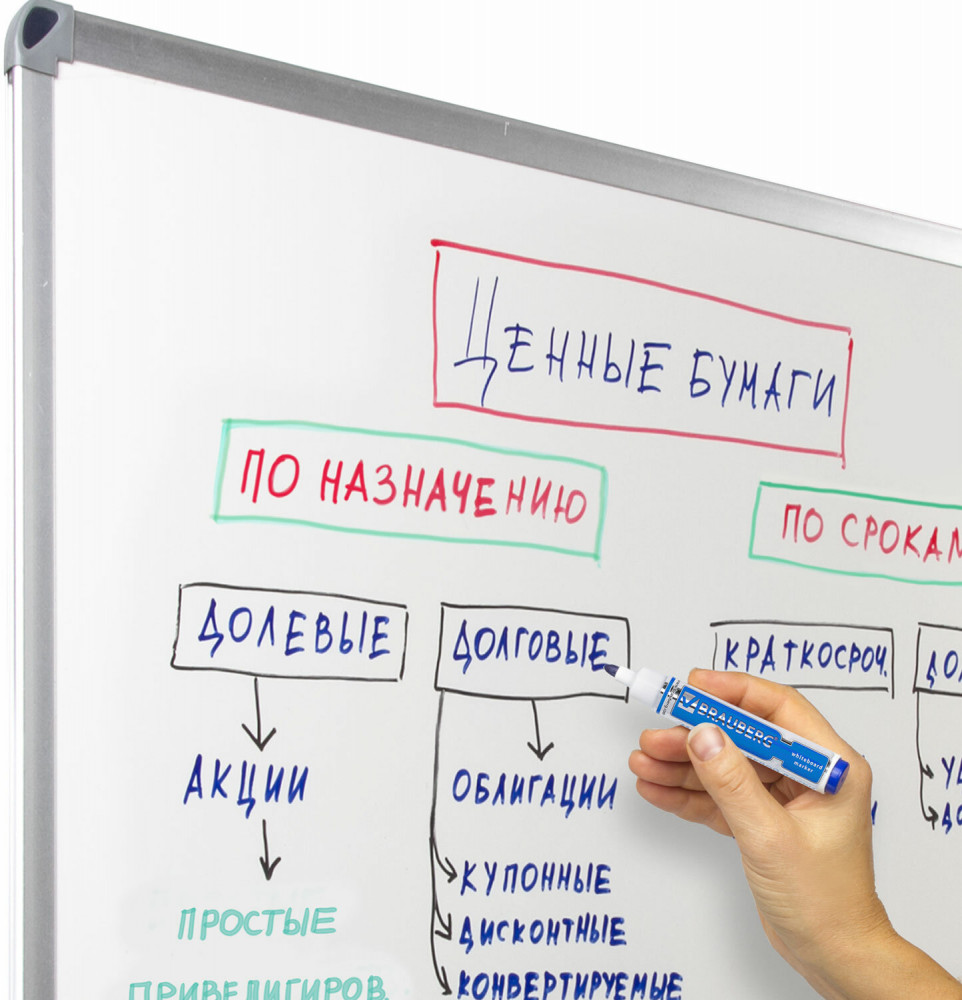 ЦЕННЫЕ БУМАГИ
ПО НАЗНАЧЕНИЮ
ПО СРОКАМ
ДОЛЕВЫЕ
ДОЛГОВЫЕ
КРАТКОСРОЧ.
АКЦИИ
ОБЛИГАЦИИ
ПРОСТЫЕ
ПРИВЕЛИГИРОВ.
КУПОННЫЕ
ДИСКОНТНЫЕ
КОНВЕРТИРУЕМЫЕ
BRAUBERG
whiteboard
marker